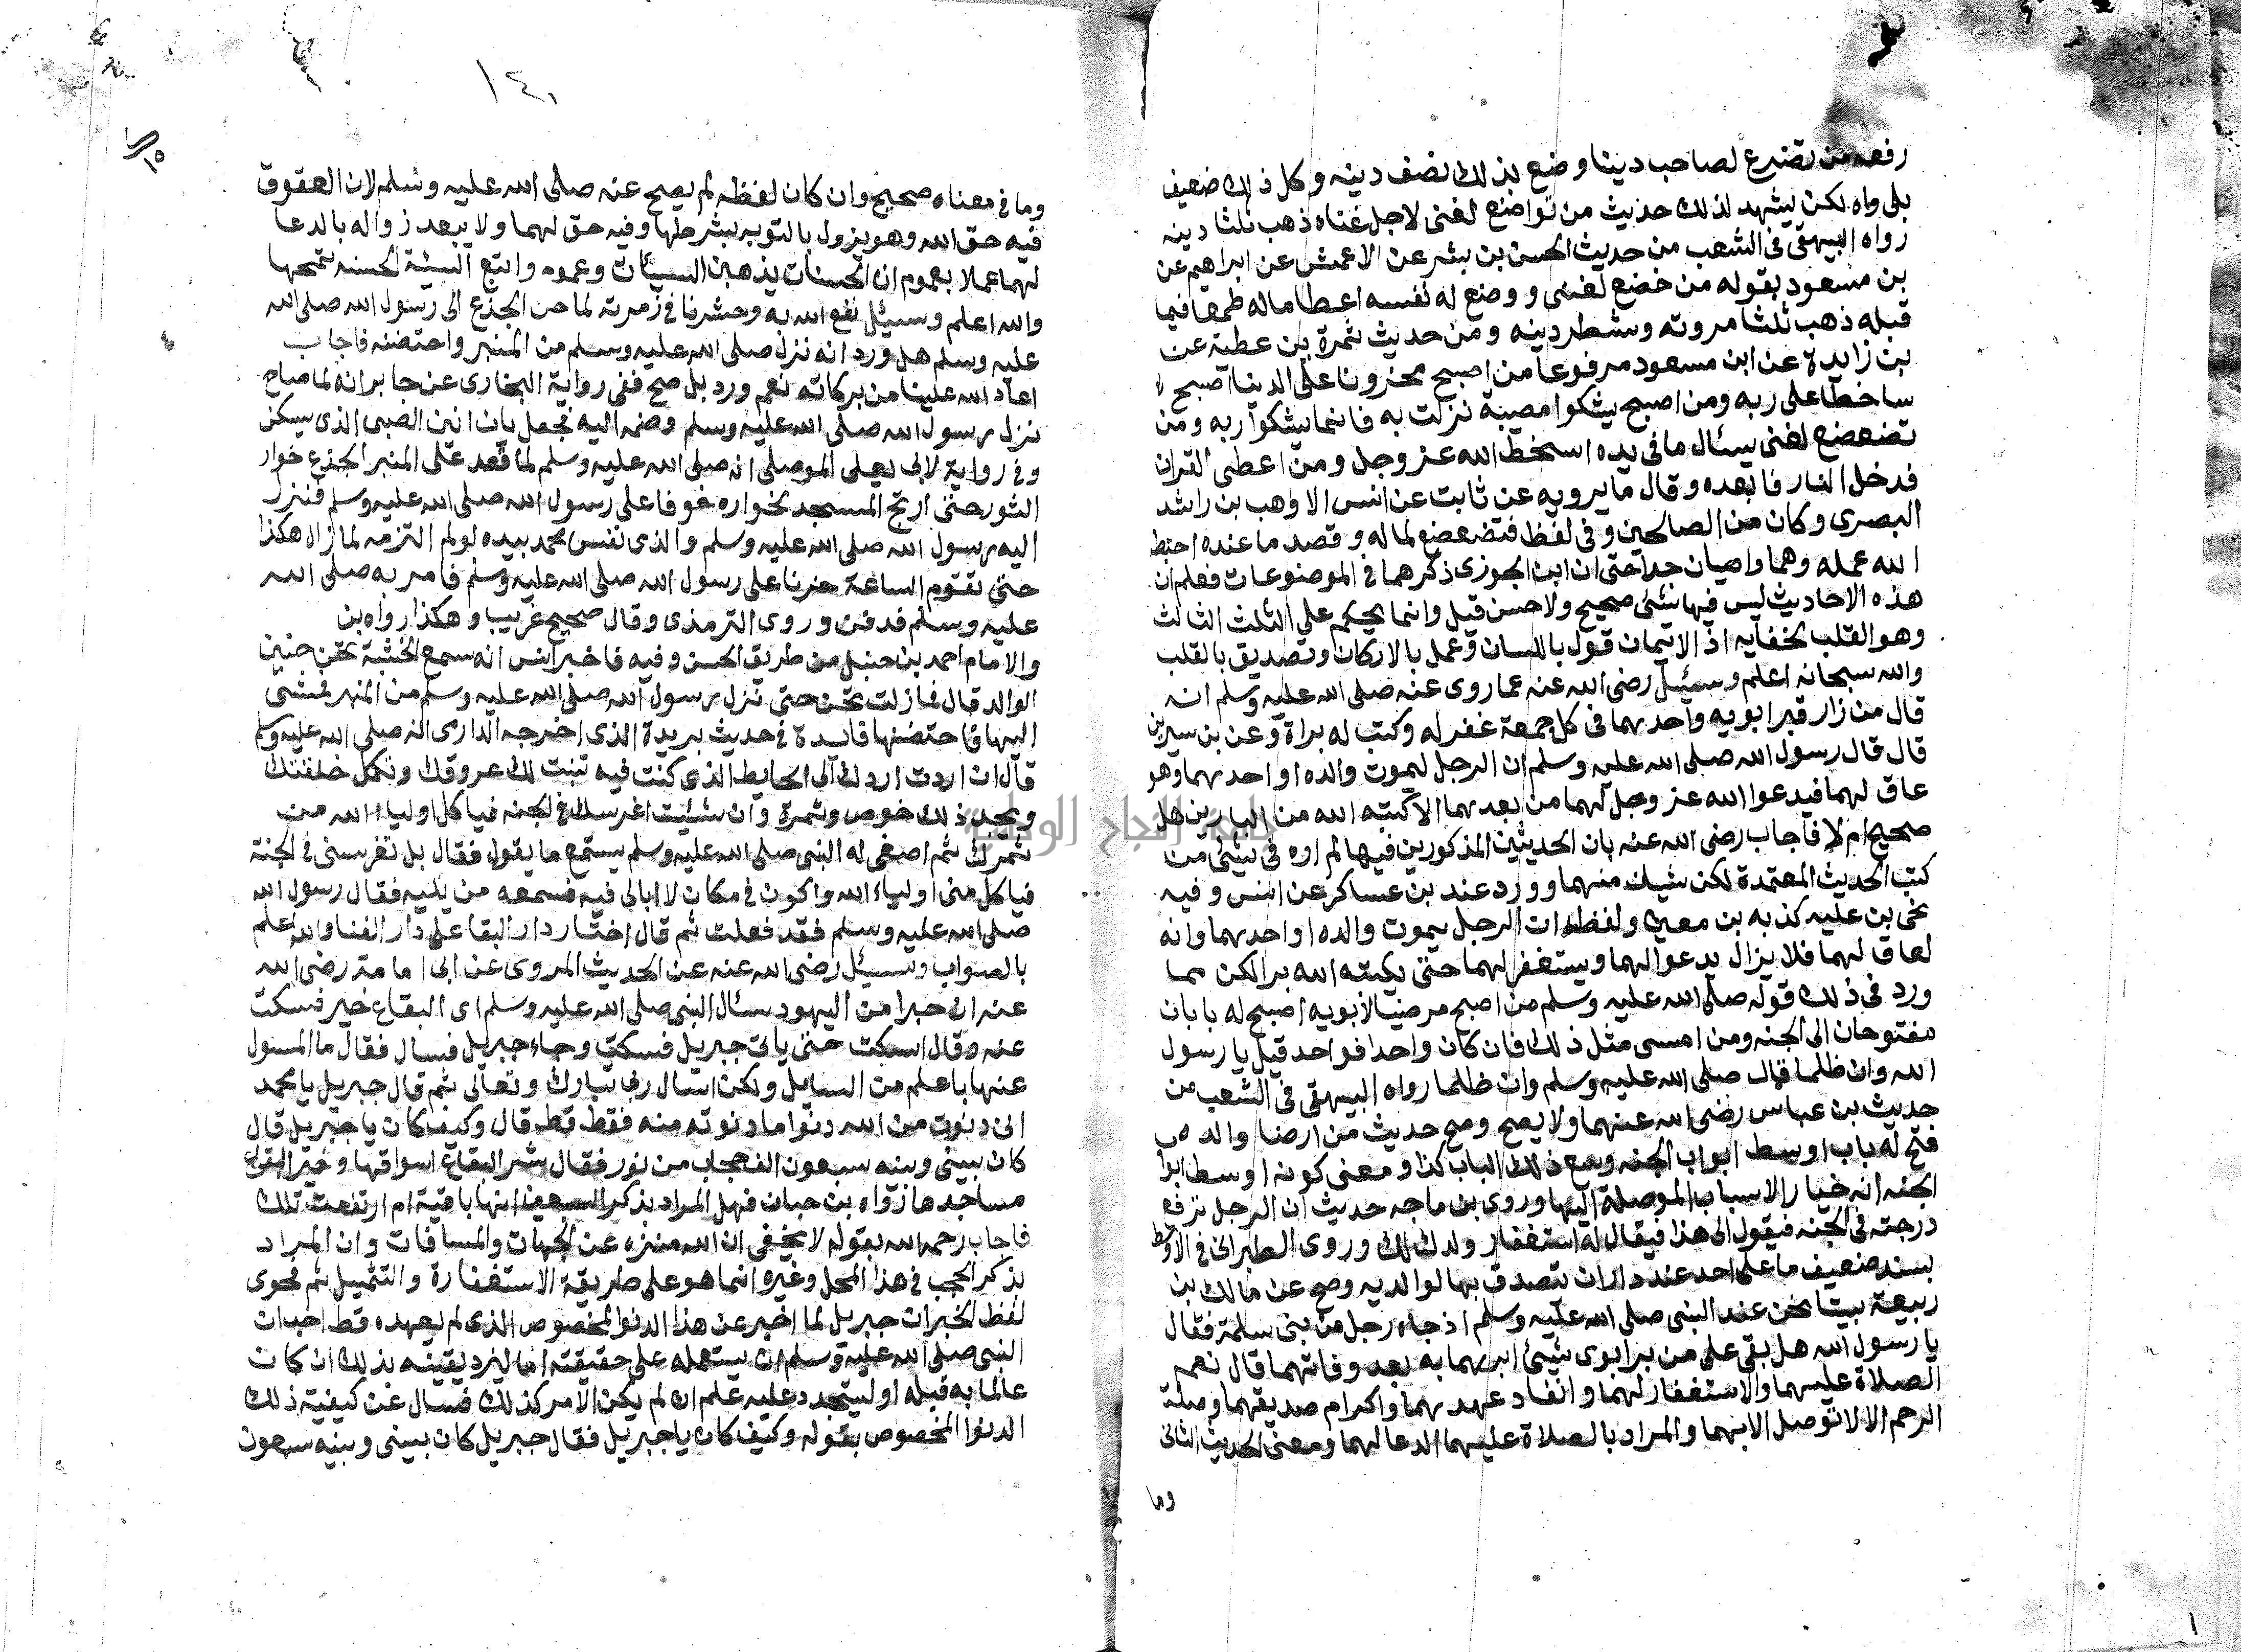 رفعه من تضرع لصاحب دينا وضع بذلك نصف دينه وكل ذلك ضعيف
بل واه لكن يشهد لذلك حديث من تواضع لغنى لاجل غناه ذهب ثلثا دينه
رواه البيهقى فى الشعب من حديث الحسن بن بشر عن الاعمش عن ابراهيم عن
بن مسعود بقوله من خضع لغنى ووضع له نفسه اعطاما له طمعا فيما
قبله ذهب ثلثا مروته وشطر دينه ومن حديث ثمرة بن عطية عن
بن زايدة عن ابن مسعود مرفوعا من اصبح محزونا على الدنيا اصبح
ساخطا على ربه ومن اصبح يشكوا مصيبة نزلت به فانما يشكوا ربه ومن
تضعضع لغنى يسئال ما فى يده اسخط الله عز وجل ومن اعطى القران
فدخل النار فابعده وقال ما يرويه عن ثابت عن انس الا وهب بن راشد
البصرى وكان من الصالحين وفى لفظ فتضعضع لما له وقصد ما عنده احبط
الله عمله وهما واهيان جدا حتى ان ابن الجوزى ذكرهما فى الموضوعات فعلم ان
هذه الاحاديث ليس فيها شئ صحيح ولا حسن قيل وانما يحكم على الثلث الثالث
وهو القلب لخفايه اذ الايمان قول باللسان وعمل بالاركان وتصديق بالقلب
والله سبحانه اعلم وسئيل رضى الله عنه عما روى عنه صلى الله عليه وسلم انه
قال من زار قبر ابويه واحدهما فى كل جمعة غفر له وكتب له براة وعن بن سيرين
قال قال رسول الله صلى الله عليه وسلم ان الرجل ليموت والده او احدهما وهو
عاق لهما فيدعوا الله عز وجل لهما من بعدهما الا كتبه الله من البارين هل
صحيح ام لا فاجاب رضى الله عنه بان الحديثين المذكورين فيها لم اره فى شئ من
كتب الحديث المعتمدة لكن شيك منهما وورد عند بن عساكر عن انس وفيه
يحى بن عليه كذبه بن معين ولفظه ان الرجل يموت والده او احدهما وانه
لعاق لهما فلا يزال يدعوا لهما ويستغفر لهما حتى يكتبه الله برا لكن مما
ورد فى ذلك قوله صلى الله عليه وسلم من اصبح مرضيا لابويه اصبح له بابان
مفتوحان الى الجنه ومن امسى مثل ذلك فان كان واحدا فواحد قيل يا رسول
الله وان ظلما قال صلى الله عليه وسلم وان ظلما رواه البيهقى فى الشعب من
حديث بن عباس رضى الله عنهما ولا يصح وصح حديث من ارضا والد
فتح له باب اوسط ابواب الجنه وسع ذلك الباب كذا ومعنى كونه اوسط ابوا
الجنه انه خيار الاسباب الموصلة اليها وروى بن ماجه حديث ان الرجل ترفع
درجته فى الجنه فيقول الى هذا فيقال له استغفار ولدك لك وروى الطبرانى فى الاوسط
بسند ضعيف ما على احد عنده اران يتصدق بها لوالديه وصح عن مالك بن
ربيعة بينا نحن عند النبى صلى الله عليه وسلم اذ جاه رجل من بنى سلمة فقال
يا رسول الله هل بقى على من بر ابوى شئ ابرهما به بعد وفاتهما قال نعم
الصلاة عليهما والاستغفار لهما وانفاد عهدهما واكرام صديقهما وصلة
الرحم الا لا توصل الا بهما والمراد بالصلاة عليهما الدعا لهما ومعنى الحديث الثانى
وما
١٤١
وما فى معناه صحيح وان كان لفظه لم يصح عنه صلى الله عليه وسلم لان العقوق
فيه حق الله وهو يزول بالتوبه بشرطها وفيه حق لهما ولا يبعد زواله بالدعا
لهما عملا بعموم ان الحسنات يذهبن السيئات وعموم واتبع السيئة الحسنه تمحها
والله اعلم وسئيل نفع الله به وحشرنا فى زمرته لما حن الجذع الى رسول الله صلى الله
عليه وسلم هل ورد انه نزل صلى الله عليه وسلم من المنبر واحتضنه فاجاب
اعاد الله علينا من بركاته نعم ورد بل صح ففى رواية البخارى عن جابر انه لما صاح
نزل رسول الله صلى الله عليه وسلم وضمه اليه فجعل يان انين الصبى الذى يسكن
وفى رواية لابى يعلى الموصلى انه صلى الله عليه وسلم لما قعد على المنبر الجذع خوار
الثور حتى ارتج المسجد بخواره خوفا على رسول الله صلى الله عليه وسلم فنزل
اليه رسول الله صلى الله عليه وسلم والذى نفس محمد بيده لو لم التزمه لما زال هكذا
حتى تقوم الساعة حزنا على رسول الله صلى الله عليه وسلم فامر به صلى الله
عليه وسلم فدفن وروى الترمذى وقال صحيح غريب وهكذا رواه بن
والامام احمد بن حنبل من طريق الحسن وفيه فاخبر انس انه سمع الخشبة تحن حنين
الوالد قال فما زلت تحن حتى نزل رسول الله صلى الله عليه وسلم من المنبر فمشى
اليها فاحتضنها فايدة فى حديث بريدة الذى اخرجه الدارى انه صلى الله عليه وسلم
قال ان اردت اردك الى الحايط الذى كنت فيه تنبت لك عروقك وتكمل خلقتك
ويجدد لك خوص وثمرة وان شئيت اغرسك فى الجنه فياكل اولياء الله من
ثمرك ثم اصغى له النبى صلى الله عليه وسلم يستمع ما يقول فقال بل تغرسنى فى الجنة
فياكل منى اولياء الله واكون فى مكان لا ابالى فيه فسمعه من يليه فقال رسول الله
صلى الله عليه وسلم فقد فعلت ثم قال اختار دار البقا على دار الفنا والله اعلم
بالصواب وسئيل رضى الله عنه عن الحديث المروى عن ابى امامة رضى الله
عنه ان حبرا من اليهود سئال النبى صلى الله عليه وسلم اى البقاع خير فسكت
عنه وقال اسكت حتى ياتى جبريل فسكت وجاء جبريل فسال فقال ما المسول
عنها باعلم من السايل ولكن اسال ربى تبارك وتعالى ثم قال جبريل يا محمد
انى دنوت من الله دنوا ما دنوته منه فقط قط قال وكيف كان يا جبريل قال
كان بينى وبينه سبعون الف حجاب من نور فقال شر البقاع اسواقها وخير البقاع
مساجدها رواه بن حبان فهل المراد بذكر السبعين انها باقية ام ارتفعت تلك
فاجاب رحمه الله بقوله لا يخفى ان الله منزه عن الجهات والمسافات وان المراد
بذكر الحجب فى هذا المحل وغيره انما هو على طريقة الاستغفارة والتمثيل ثم فحوى
لفظ الخبر ان جبريل لما اخبر عن هذا الدنو المخصوص الذى لم يعهده قط احب ان
النبى صلى الله عليه وسلم ان يستعمله على حقيقته اما ليزد يقينه بذلك ان كان
عالما به قبله او ليتجدد عليه علم ان لم يكن الامر كذلك فسال عن كيفية ذلك
الدنوا المخصوص بقوله وكيف كان يا جبريل فقال جبريل كان بينى وبينه سبعون
جامعة النجاح الوطنية